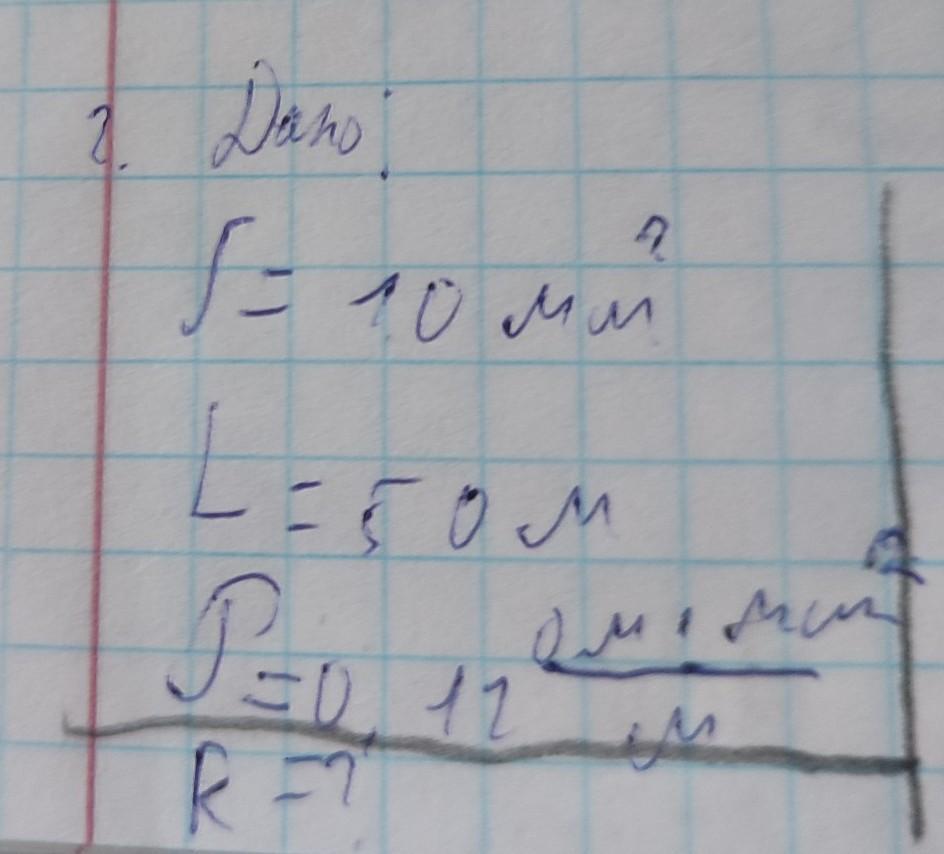 2. Дано:
S = 10 мм²
L = 50 м
ρ = 0,12 Ом · мм²/м
R = ?